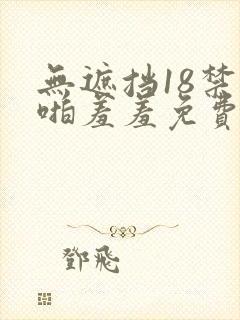 無遮挡18禁
啪羞羞免費
鄧飛